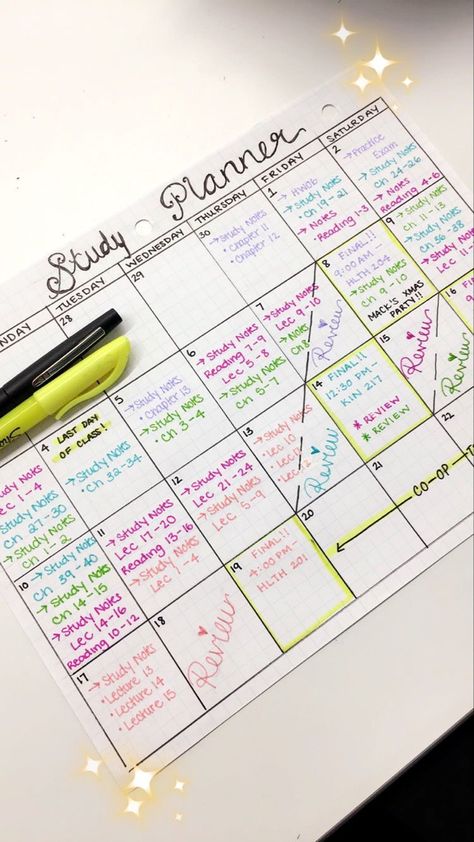 Study Planner
NDAY
TUESDAY
WEDNESDAY
THURSDAY
FRIDAY
SATURDAY
28
29
30
→Study Notes
• Chapter 11
• Chapter 12
1
→ HW06
→Study Notes
Ch 19-21
→ Notes
Reading 1-3
2
→Practice
Exam
→Study Notes
Ch 24-26
→ Notes
Reading 4-6
4
LAST DAY
OF CLASS!
Study Notes
Lec 1-4
Study Notes
Ch 27-30
Study Notes
Ch 1-2
5
→Study Notes
Ch 32-34
6
→Study Notes
• Chapter 13
→Study Notes
Ch 3-4
7
→Study Notes
Reading 7-9
Lec 5-8
→Study Notes
Ch 5-7
8
→Study Notes
Lec 9-10
→Notes
Ch8
Review
9
FINAL!!
9:00 AM -
HLTH 204
→Study Notes
Ch 9-10
MACK'S XMAS
PARTY!!
→Study Notes
Ch 11-13
→Study Notes
Ch 36-38
→Study Notes
Lec 11-
10
→Study Notes
Ch 39-40
→Study Notes
Ch 14-15
→Study Notes
Lec 14-16
Reading 10-12
11
→Study Notes
Lec 17-20
Reading 13-16
→Study Notes
Lec 1-4
12
→Study Notes
Lec 21-24
→Study Notes
Lec 5-9
13
→Study Notes
Lec 10
Review
14
FINAL!!
12:30 PM -
KIN 217
* REVIEW
* REVIEW
15
Review
16
Review
17
→Study Notes
• Lecture 13
• Lecture 14
• Lecture 15
18
Review
19
FINAL!!
4:00 PM -
HLTH 201
20
21
CO-OP
22